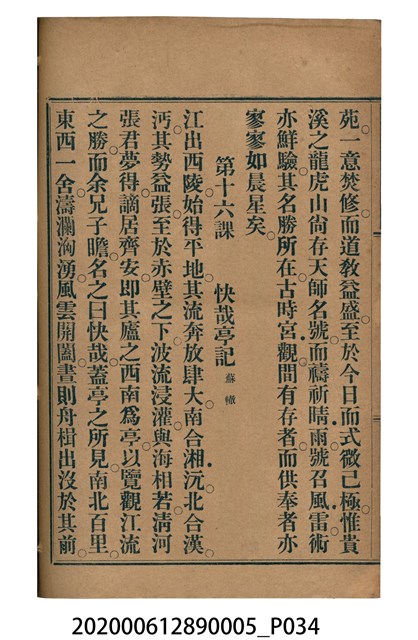 苑一意焚修而道教益盛至於今日而式微已極惟貴
溪之龍虎山尚存天師名號而禱祈晴雨號召風雷術
亦鮮驗其名勝所在古時宮觀間有存者而供奉者亦
寥寥如晨星矣
第十六課　快哉亭記 蘇轍
江出西陵始得平地其流奔放肆大南合湘沅北合漢
沔其勢益張至於赤壁之下波流浸灌與海相若淸河
張君夢得謫居齊安卽其廬之西南爲亭以覽觀江流
之勝而余兄子瞻名之曰快哉蓋亭之所見南北百里
東西一舍濤瀾洶湧風雲開闔晝則舟楫出沒於其前
202000612890005_P034